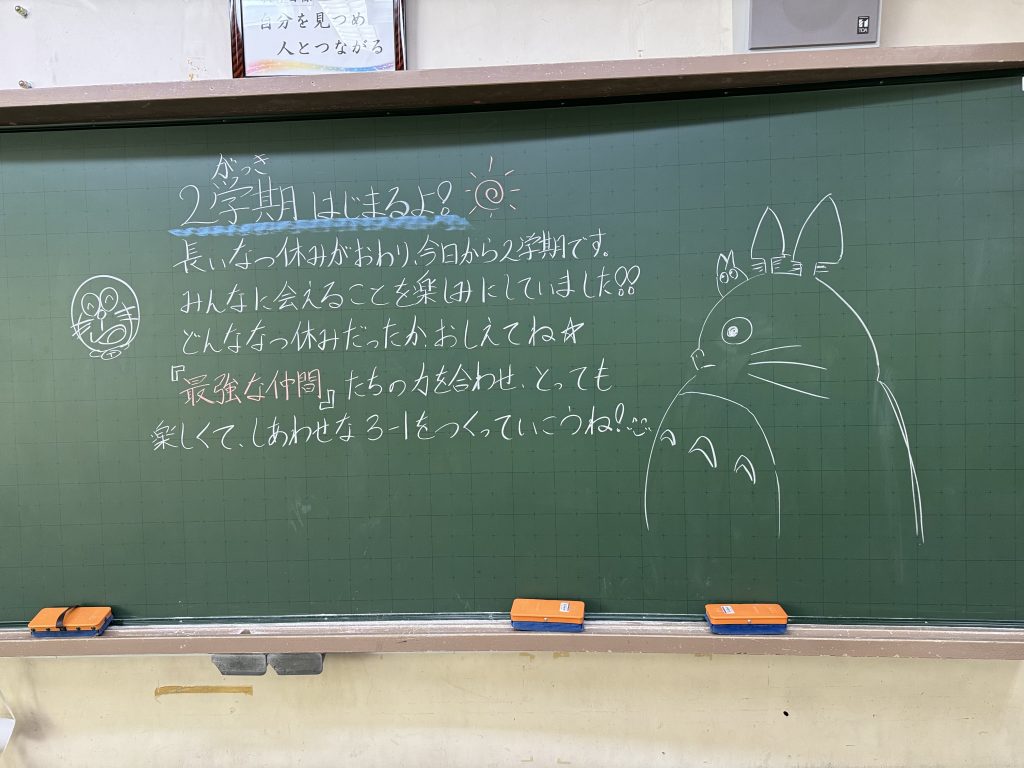 自分を見つめ
人とつながる
TOA
がっき
2学期はじまるよ!
長いなつ休みがおわり、今日から2学期です。
みんなに会えることを楽しみにしていました!!
どんななつ休みだったか、おしえてね☆
『最強な仲間』たちの力を合わせ、とっても
楽しくて、しあわせな3-1をつくっていこうね!